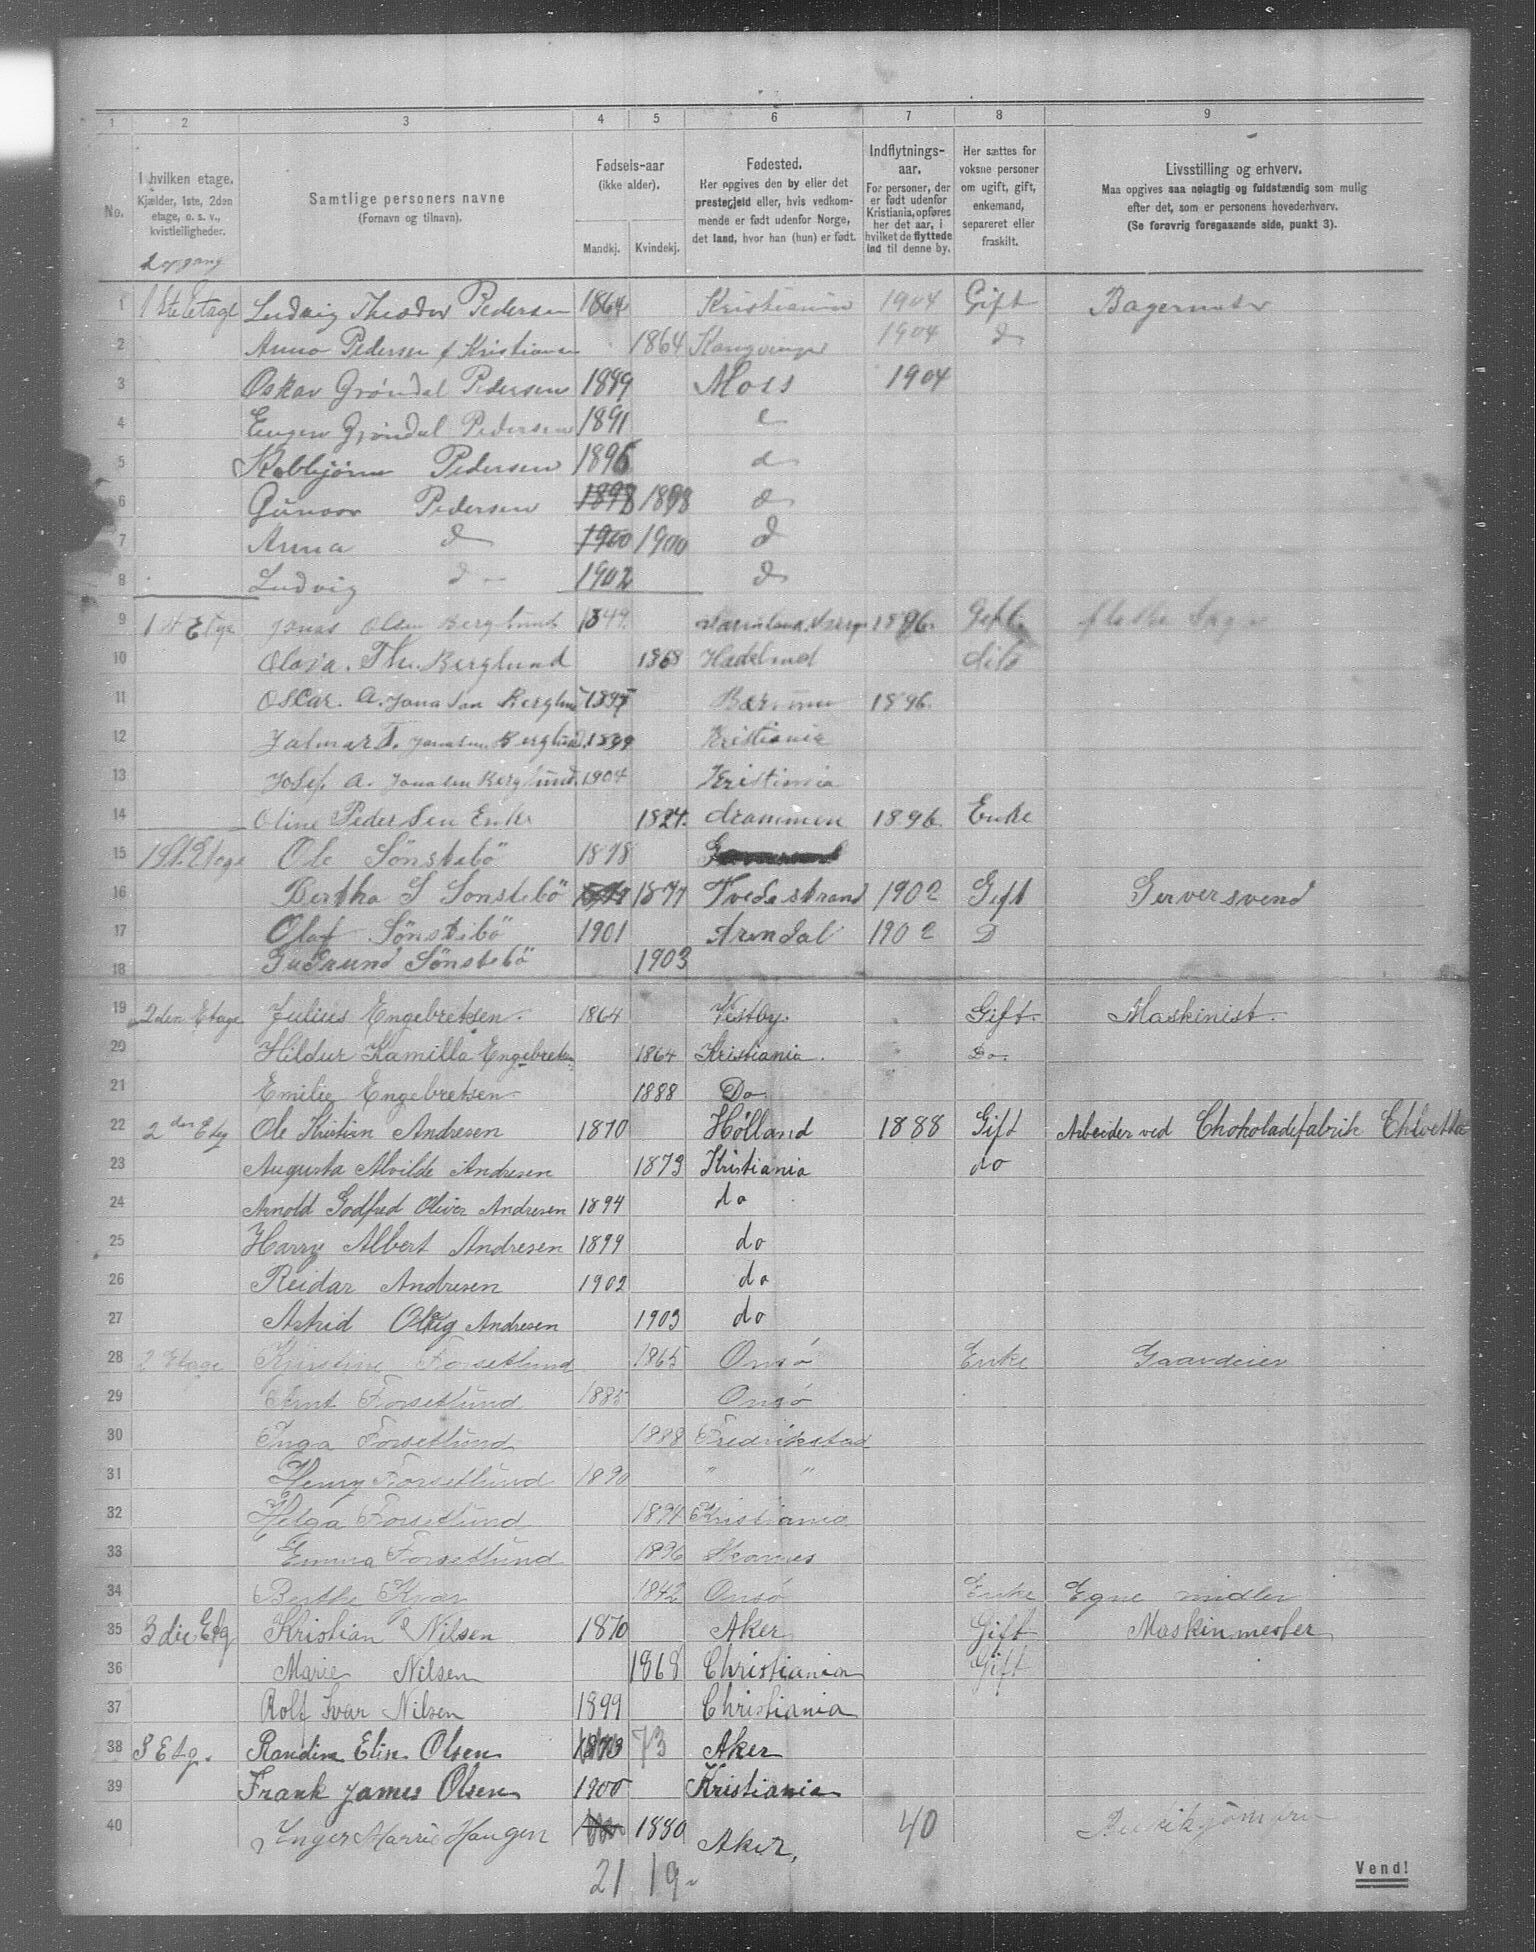 1 2 3 4 5 6 7 8 9
No.
I hvilken etage.
Kjælder, 1ste, 2den
etage, o. s. v.,
kvistleiligheder.
Samtlige personers navne
(Fornavn og tilnavn).
Fødsels-aar
(ikke alder).
Mandkj. Kvindekj.
Fødested.
Her opgives den by eller det
prestegjeld eller, hvis vedkom-
mende er født udenfor Norge,
det land, hvor han (hun) er født.
Indflytnings-
aar.
For personer, der
er født udenfor
Kristiania, opføres
her det aar, i
hvilket de flyttede
ind til denne by.
Her sættes for
voksne personer
om ugift, gift,
enkemand,
separeret eller
fraskilt.
Livsstilling og erhverv.
Maa opgives saa nøiagtig og fuldstændig som mulig
efter det, som er personens hovederhverv.
(Se forøvrig foregaaende side, punkt 3).
1 1ste Etage Ludvig Theodor Pedersen 1864 Kristiania 1904 Gift
2 Anna Pedersen f Kristiansen 1864 1904 d
3 Oskar Grøndal Pedersen 1889 Moss 1904
4 Eugen Grøndal Pedersen 1891
5 Pedersen 1896 d
6 Gunvor Pedersen 1898 1898 d
7 Anna d 1900 1900 d
8 Ludvig d 1902 d
9 1st Etge Jonas Olsen Berglund 1849 1896. Gift
10 Th. Berglund 1868 Hadeland dito
11 Oscar. A. Jonassen Berglund Bærum 1896.
12 Jalmar T. Jonassen Berglund 1899 Kristiania
13 Josef. A. Jonassen Berglund. 1904 Kristiania
14 Oline Pedersen Enke 1824. drammen 1896. Enke
15 1st. Etage Ole Sönstebö 1878
16 Bertha S Sonstebö 1877 Tvedestrand 1902 Gift Gerversvend
17 Olaf Sönstebö 1901 Arendal 1902 D
18 Gudrund Sönstebö 1903
19 2den Etage Julius Engebretsen. 1864 Vestby. Gift. Maskinist.
20 Hildur Kamilla Engebretsen 1864 Kristiania. Do.
21 Emilie Engebretsen 1888 Do.
22 2den Etg Ole Kristian Andresen 1870 Hølland 1888 Gift Arbeider ved Chokoladefabrik
23 Augusta Alvilde Andresen 1873 Kristiania do
24 Arnold Godfred Oliver Andresen 1894 do
25 Harry Albert Andresen 1899 do
26 Reidar Andresen 1902 do
27 Astrid Olaug Andresen 1903 do
28 2 Etage Kristine Forsetlund 1865 Onsö Enke Gaardeier
29 Arnt Forsetlund 1885 Onsö
30 Inga Forsetlund 1888 Fredrikstad
31 Henry Forsetlund 1890 " "
32 Helga Forsetlund 1894 Kristiania
33 Emma Forsetlund 1896
34 Berthe 1842 Onsö Enke Egne midler
35 3die Etg Kristian Nilsen 1870 Aker Gift Maskinmester
36 Marie Nilsen 1868 Christiania Gift
37 Rolf Ivar Nilsen 1899 Christiania
38 3 Etg. Randine Elise Olsen 1873 73 Aker
39 Frank James Olsen 1900 Kristiania
40 Inger Marrie Haugen 1880 Aker, 40
21 19
Vend!